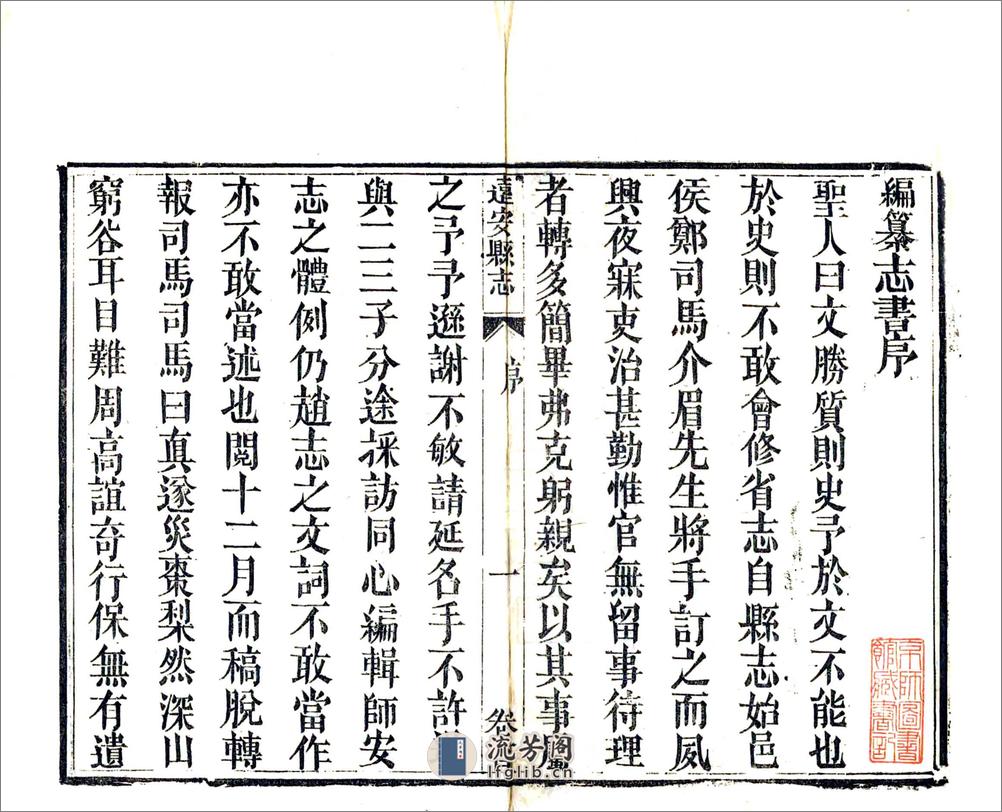 編纂志書序
聖人曰文勝質則史予於文不能也
於史則不敢會修省志自縣志始邑
侯鄭司馬介眉先生將手訂之而夙
興夜寐吏治甚勤惟官無留事待理
者轉多簡畢弗克躬親矣以其事
遠安縣志
序
一
卷
之予予遜謝不敏請延名手不許
與二三子分途採訪同心編輯師安
志之體例仍趙志之文詞不敢當作
亦不敢當述也閱十二月而稿脫轉
報司馬司馬曰真遂災棗梨然深山
窮谷耳目難周高誼奇行保無有遺
京師圖書
館藏書記
流芳閣
lfglib.cn